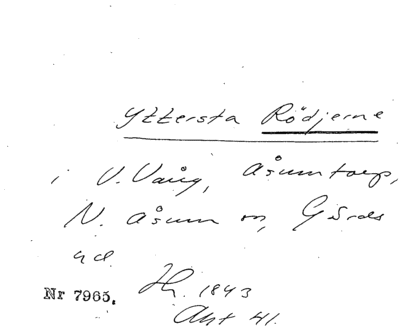 Yttersta Rödjerne
i V. Vång, Åsumtorp,
N. Åsum sn, Gärds
hd
Nr 7965. Hy. 1843
Akt 41.